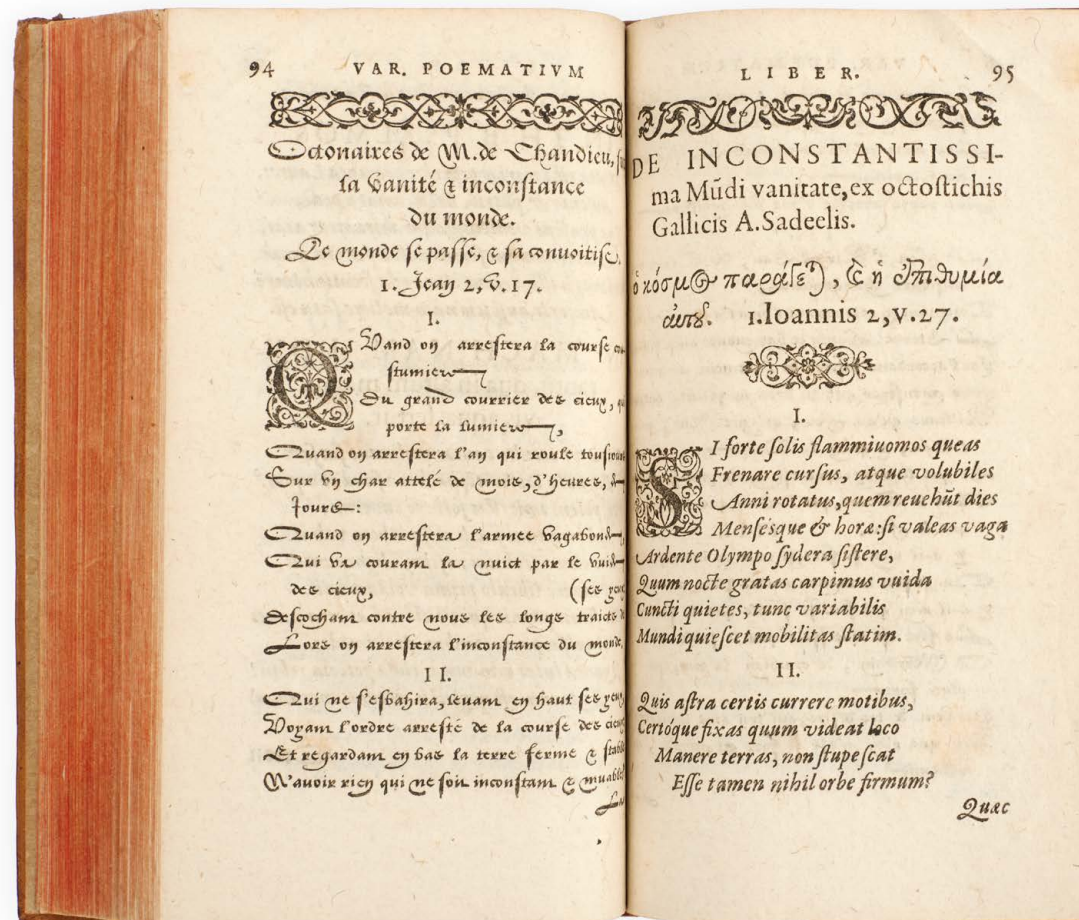 94 VAR. POEMATIVM
Octonaires de M. de Chandieu,
la vanité & inconstance
du monde.
Le monde se passe, & sa conuoitise,
1. Jean 2, v. 17.
I.
QVand on arrestera la course
stumiere
Du grand courrier des cieux,
porte la lumiere,
Quand on arrestera l'an qui roule tousiours
Sur vn char attelé de mois, d'heures, &
Iours:
Quand on arrestera l'armee vagabonde,
Qui va courant la nuict par le vuide
des cieux, (ses yeux
Descochant contre nous les longs traicts
Lors on arrestera l'inconstance du monde.
II.
Qui ne s'esbahira, leuant en haut ses yeux,
Voyant l'ordre arresté de la course des cieux
Et regardant en bas la terre ferme & stable
N'avoir rien qui ne soit inconstant & muable?
LIBER. 95
DE INCONSTANTISSI-
ma Mũdi vanitate, ex octostichis
Gallicis A. Sadeelis.
ὁ κόσμος παράγεται, καὶ ἡ ἐπιθυμία
αὐτοῦ. 1. Ioannis 2, v. 27.
I.
SI forte solis flammiuomos queas
Frenare cursus, atque volubiles
Anni rotatus, quem reuehũt dies
Mensésque & horæ: si valeas vaga
Ardente Olympo sydera sistere,
Quum nocte gratas carpimus vuida
Cuncti quietes, tunc variabilis
Mundi quiescet mobilitas statim.
II.
Quis astra certis currere motibus,
Certóque fixas quum videat loco
Manere terras, non stupescat
Esse tamen nihil orbe firmum?
Quæc